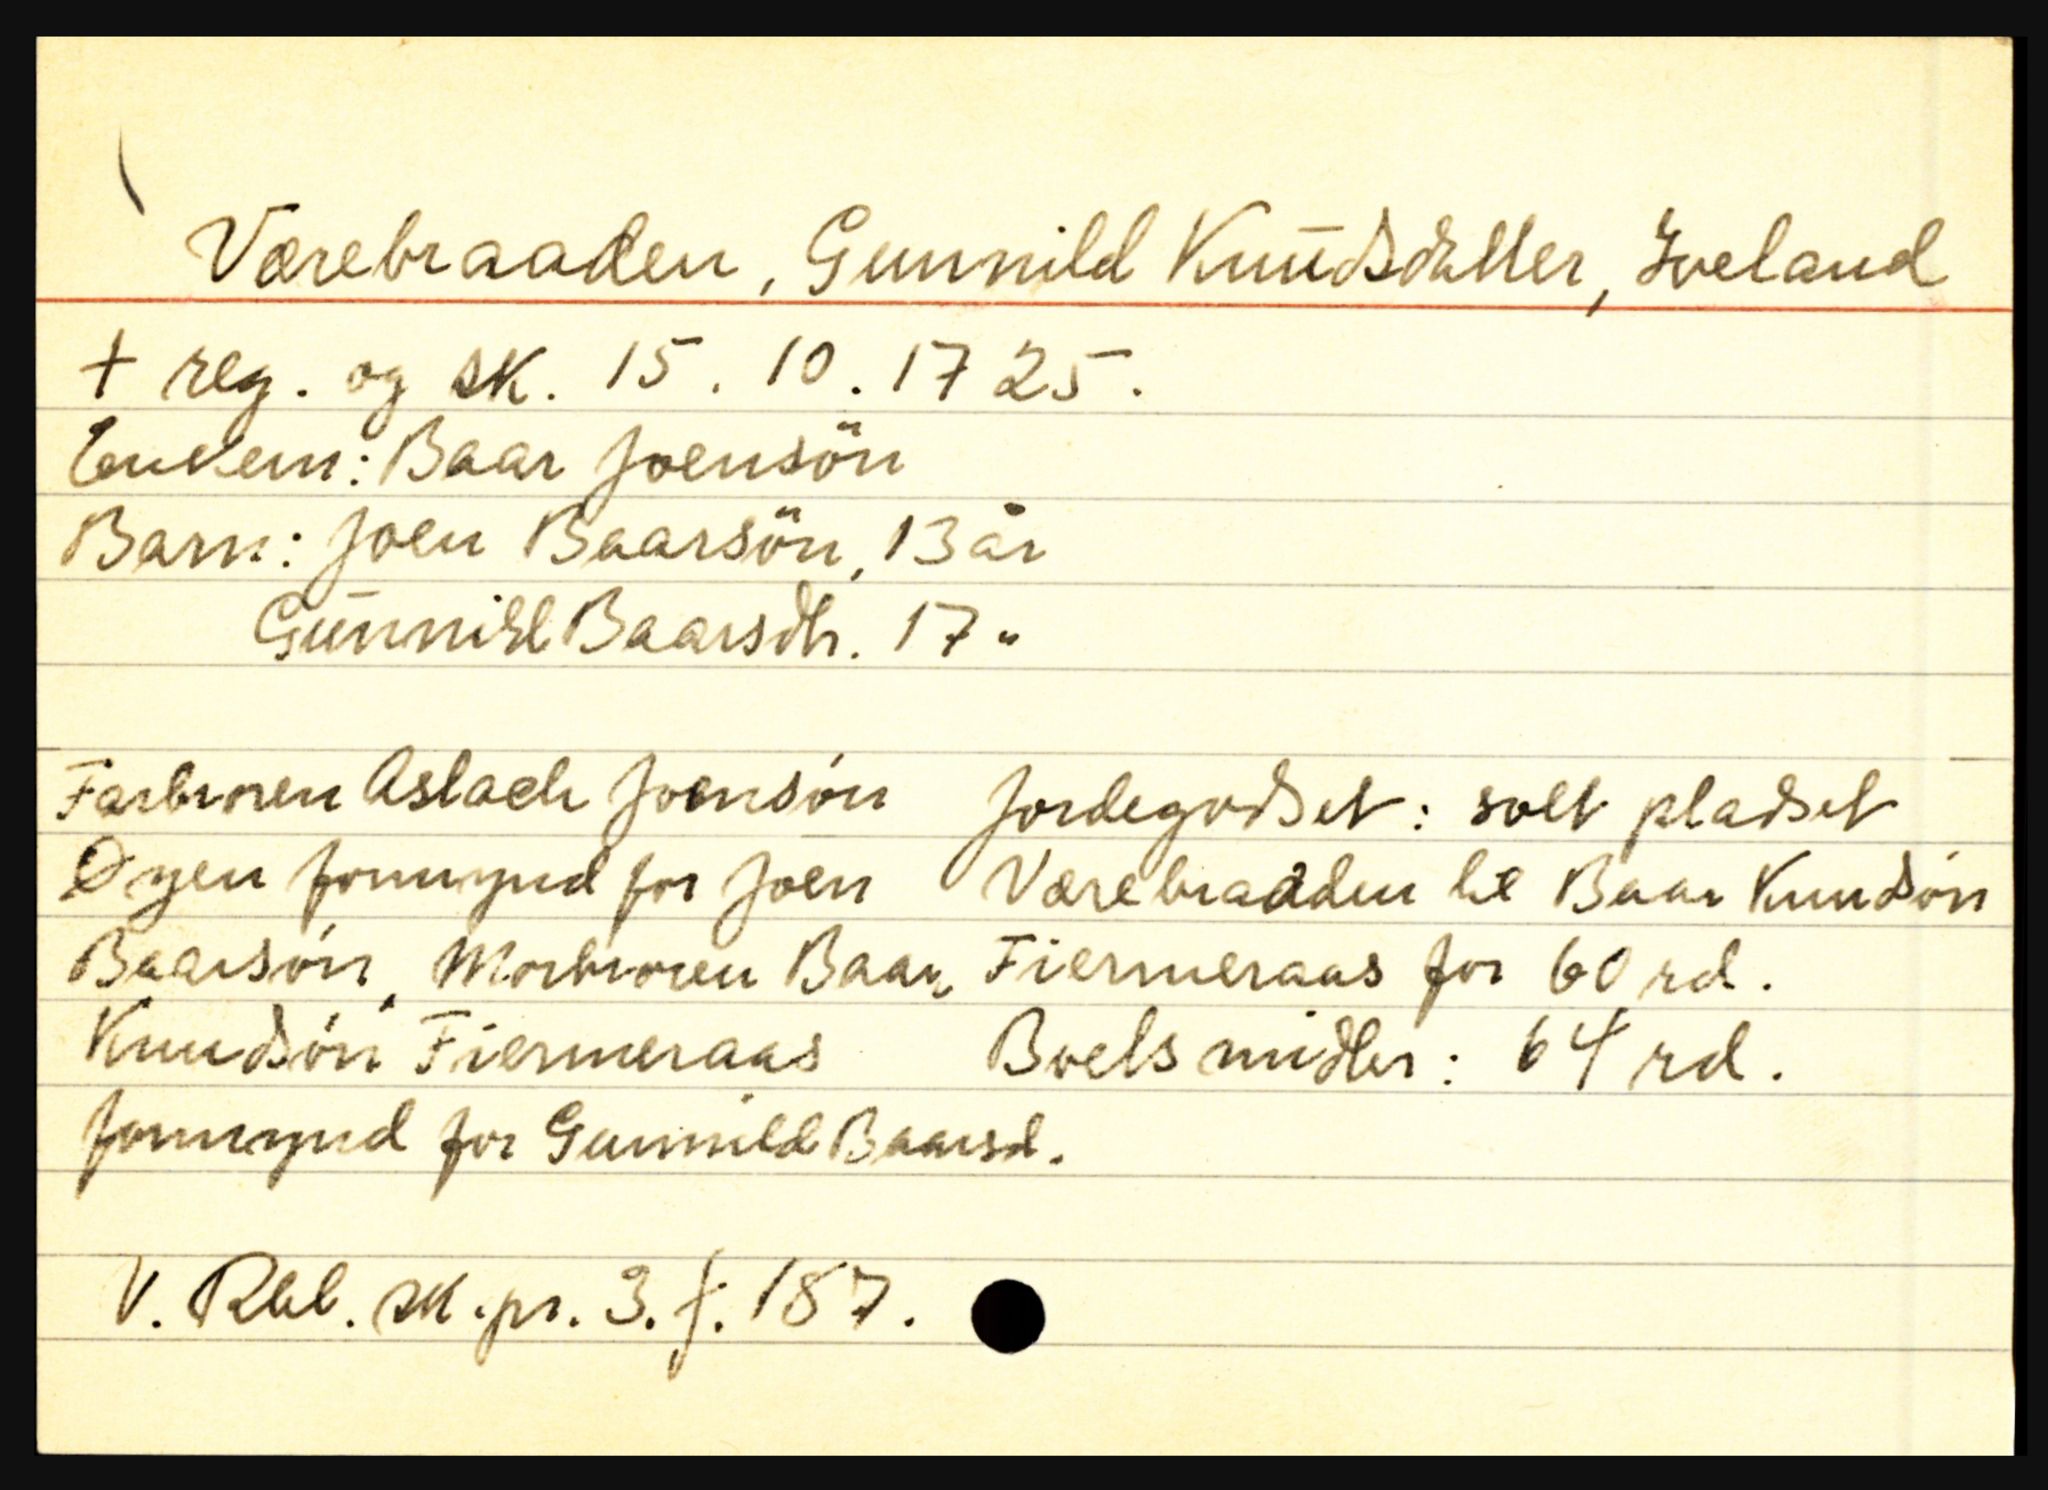 Værebraaden, Gunnild Knudsdatter, Iveland
+ reg. og sk. 15. 10. 1725.
Enkem: Baar Joensön
Barn: Joen Baarsön, 13 år
Gunnild Baarsdtr. 17 "
Farbroren Aslach Joensón
Øyen formynd for Joen
Baarsón, Morbroren Baar
Knudsón Fiermeraas
formynd for Gunnild Baarsd.
Jordegodset: solt pladset
Værebraaden til Baar Knudsón
Fiermeraas for 60 rd.
Boels midler: 64 rd.
V. Rbl. sk.pr. 3. f. 187.